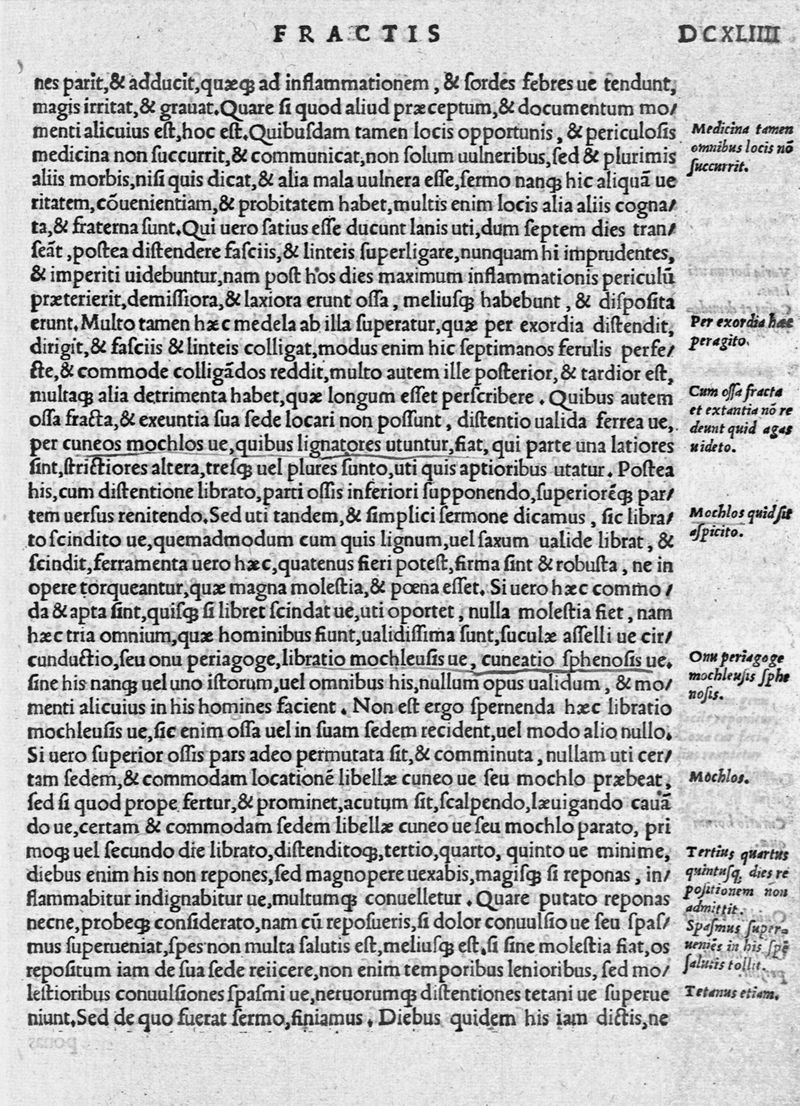 FRACTIS
DCXLIIII
nes parit,& adducit,quæq; ad inflammationem, & ſordes febres ue tendunt,
magis irritat,& grauat.Quare ſi quod aliud præceptum,& documentum mo/
menti alicuius eſt,hoc eſt.Quibuſdam tamen locis opportunis, & periculoſis
medicina non ſuccurrit,& communicat,non ſolum uulneribus,ſed & plurimis
aliis morbis,niſi quis dicat,& alia mala uulnera eſſe,ſermo nanq; hic aliquã ue
ritatem,cõuenientiam,& probitatem habet,multis enim locis alia aliis cogna/
ta,& fraterna ſunt.Qui uero ſatius eſſe ducunt lanis uti,dum ſeptem dies tran/
ſeãt,poſtea diſtendere faſciis,& linteis ſuperligare,nunquam hi imprudentes,
& imperiti uidebuntur,nam poſt hos dies maximum inflammationis periculũ
præterierit,demiſſiora,& laxiora erunt oſſa, meliuſq; habebunt, & diſpoſita
erunt.Multo tamen hæc medela ab illa ſuperatur,quæ per exordia diſtendit,
dirigit,& faſciis & linteis colligat,modus enim hic ſeptimanos ferulis perfe/
cte,& commode colligãdos reddit,multo autem ille poſterior,& tardior eſt,
multaq; alia detrimenta habet,quæ longum eſſet perſcribere. Quibus autem
oſſa fracta,& exeuntia ſua ſede locari non poſſunt, diſtentio ualida ferrea ue,
per cuneos mochlos ue,quibus lignatores utuntur,fiat, qui parte una latiores
ſint,ſtrictiores altera,treſq; uel plures ſunto,uti quis aptioribus utatur. Poſtea
his,cum diſtentione librato,parti oſſis inferiori ſupponendo,ſuperiorẽq; par/
tem uerſus renitendo.Sed uti tandem,& ſimplici ſermone dicamus, ſic libra/
to ſcindito ue,quemadmodum cum quis lignum,uel ſaxum ualide librat, &
ſcindit,ferramenta uero hæc,quatenus fieri poteſt,firma ſint & robuſta, ne in
opere torqueantur,quæ magna moleſtia,& pœna eſſet. Si uero hæc commo/
da & apta ſint,quiſq; ſi libret ſcindat ue,uti oportet, nulla moleſtia fiet, nam
hæc tria omnium,quæ hominibus fiunt,ualidiſſima ſunt,ſuculæ aſſelli ue cir/
cunductio,ſeu onu periagoge,libratio mochleuſis ue, cuneatio ſphenoſis ue.
ſine his nanq; uel uno iſtorum,uel omnibus his,nullum opus ualidum, & mo/
menti alicuius in his homines facient. Non eſt ergo ſpernenda hæc libratio
mochleuſis ue,ſic enim oſſa uel in ſuam ſedem recident,uel modo alio nullo.
Si uero ſuperior oſſis pars adeo permutata ſit,& comminuta, nullam uti cer/
tam ſedem,& commodam locationẽ libellæ cuneo ue ſeu mochlo præbeat,
ſed ſi quod prope fertur,& prominet,acutum ſit,ſcalpendo,læuigando cauã
do ue,certam & commodam ſedem libellæ cuneo ue ſeu mochlo parato, pri
moq; uel ſecundo die librato,diſtenditoq;,tertio,quarto, quinto ue minime,
diebus enim his non repones,ſed magnopere uexabis,magiſq; ſi reponas, in/
flammabitur indignabitur ue,multumq; conuelletur. Quare putato reponas
necne,probeq; conſiderato,nam cũ repoſueris,ſi dolor conuulſio ue ſeu ſpaſ/
mus ſuperueniat,ſpes non multa ſalutis eſt,meliuſq; eſt,ſi ſine moleſtia fiat,os
repoſitum iam de ſua ſede reiicere,non enim temporibus lenioribus, ſed mo/
leſtioribus conuulſiones ſpaſmi ue,neruorumq; diſtentiones tetani ue ſuperue
niunt.Sed de quo fuerat ſermo,finiamus. Diebus quidem his iam dictis,ne
Medicina tamen
omnibus locis nõ
ſuccurrit.
Per exordia hæc
peragito.
Cum oſſa fracta
et extantia nõ re
deunt quid agas
uideto.
Mochlos quid ſit
aſpicito.
Onu periagoge
mochleuſis ſphe
noſis.
Mochlos.
Tertius quartus
quintuſq; dies re
poſitionem non
admittit.
Spaſmus ſuper-
ueniẽs in his ſpẽ
ſalutis tollit.
Tetanus etiam.